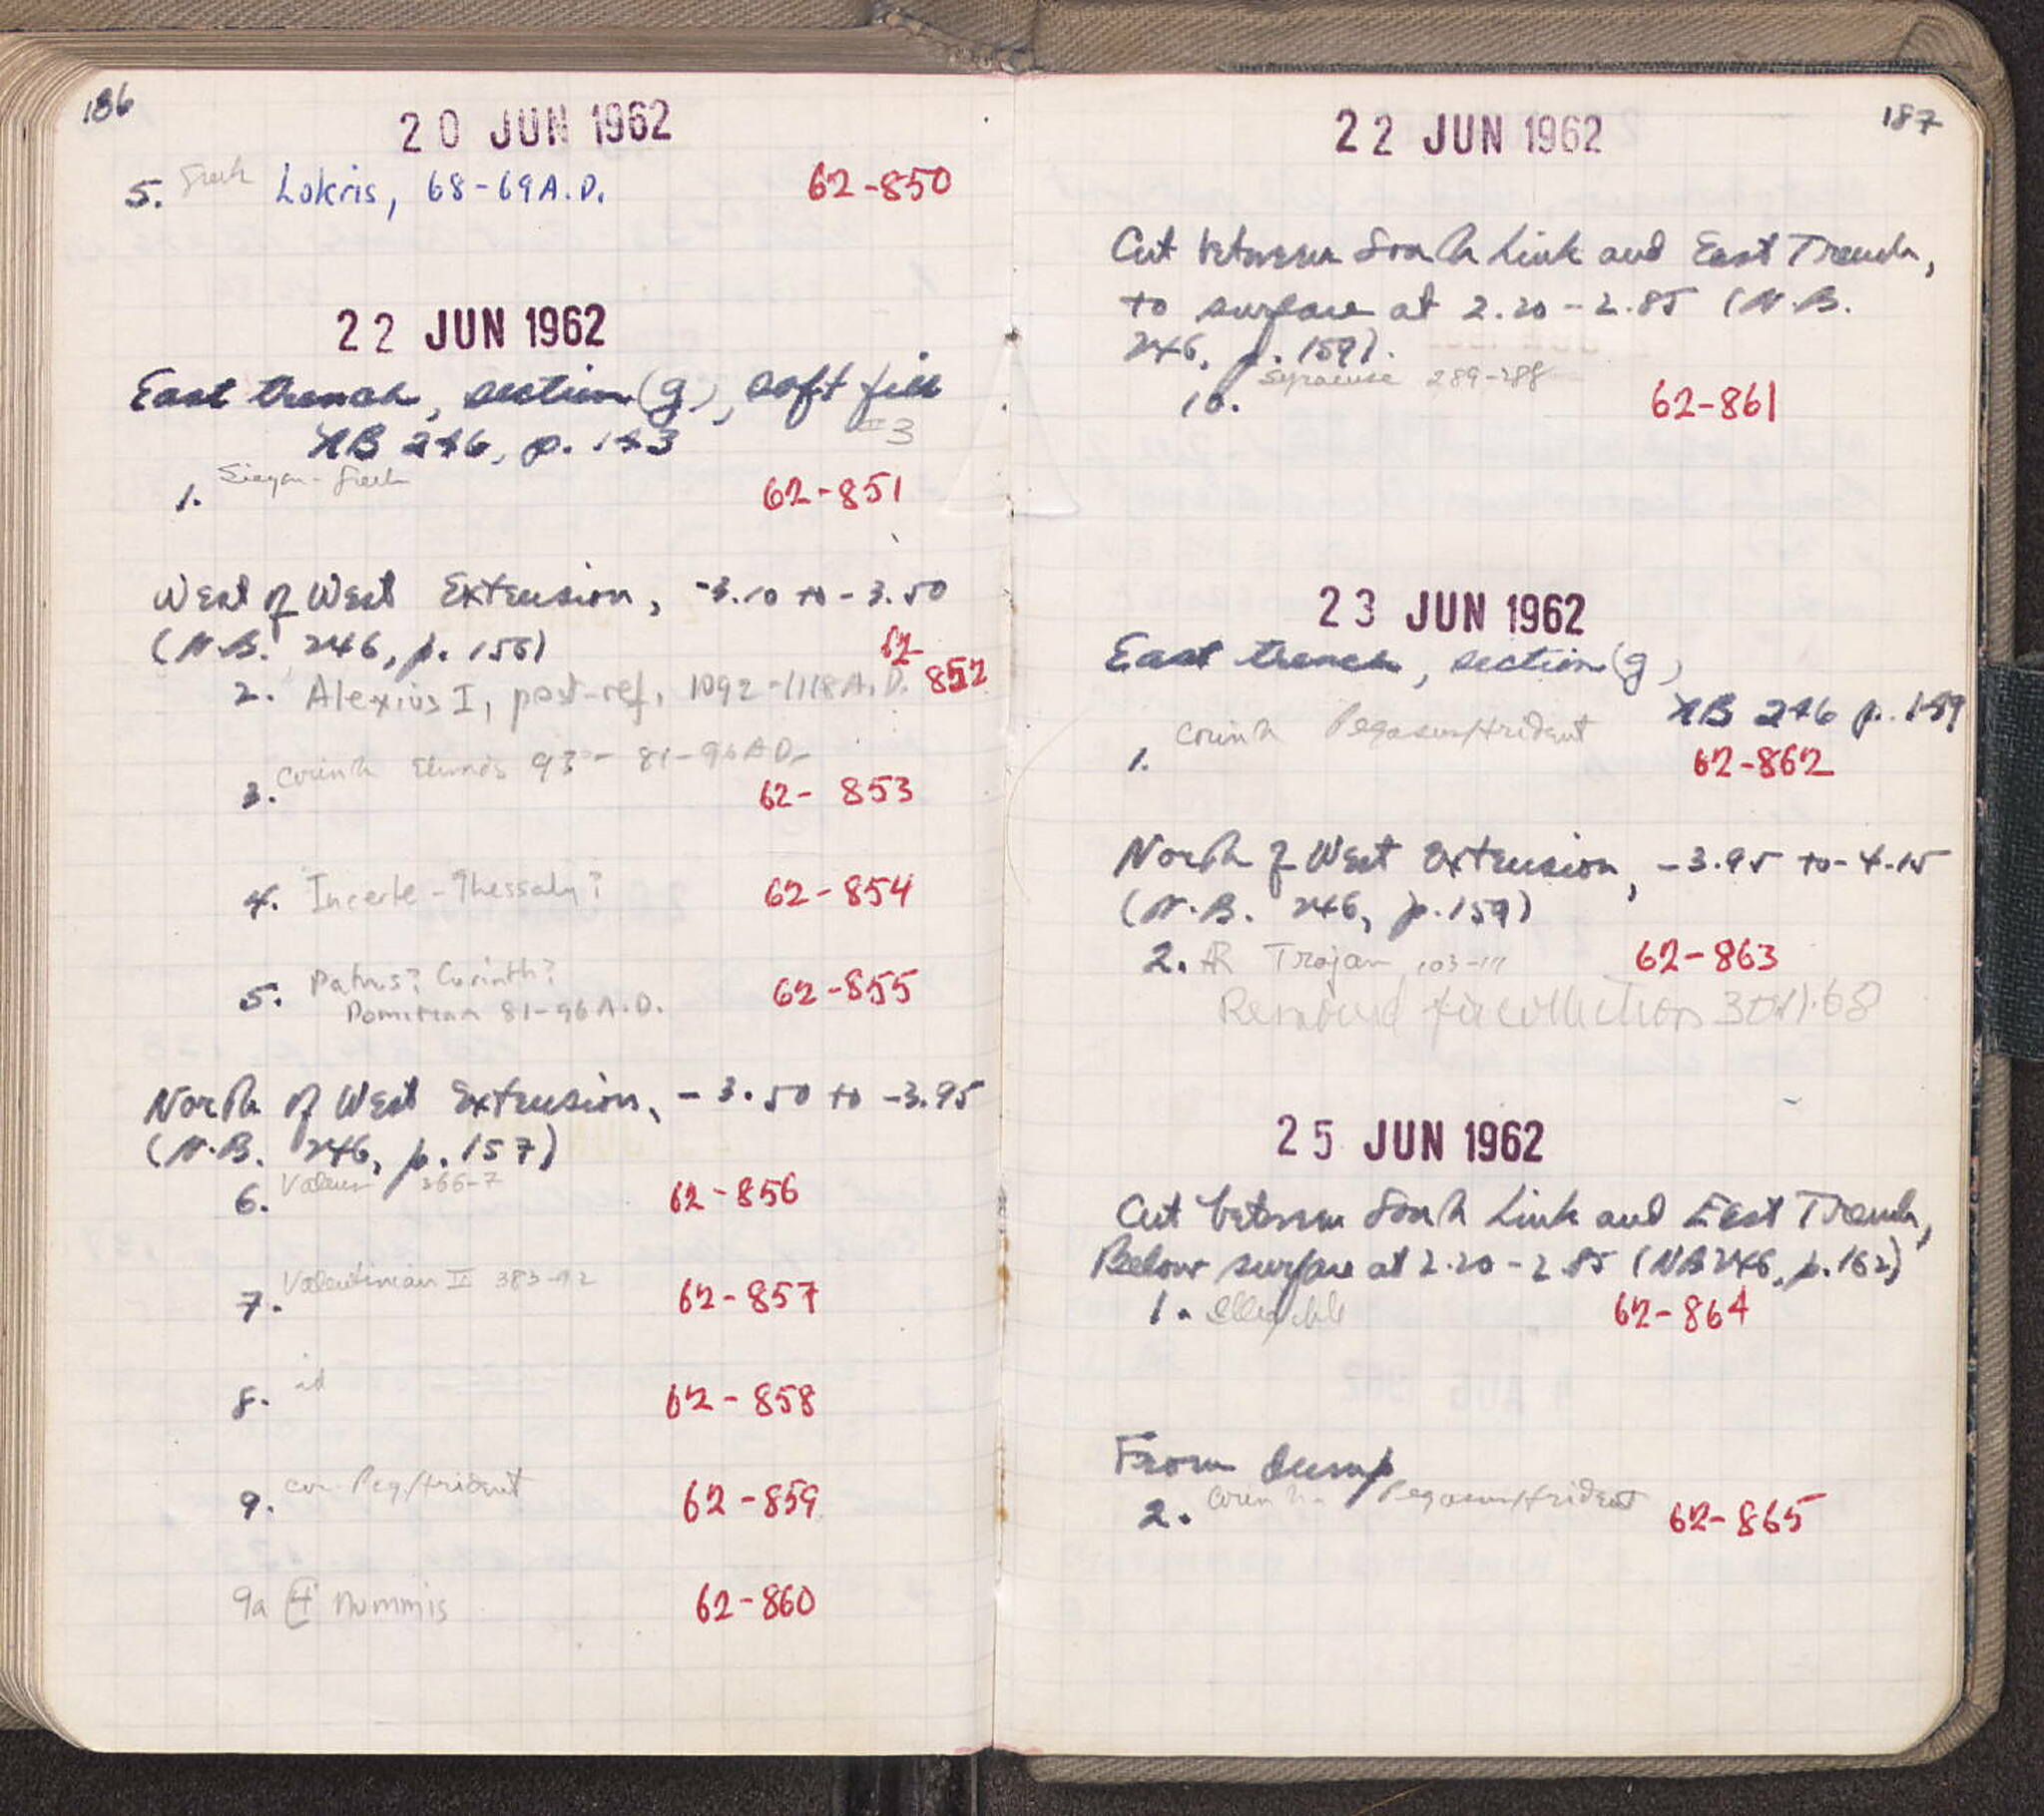 186
20 JUN 1962
5. Greek Lokris, 68-69 A.D. 62-850
22 JUN 1962
East trench, section (g), soft fill
NB 246, p. 143 3
1. Sicyon-Greek 62-851
West of West Extension, -3.10 to -3.50
(N.B. 246, p. 156) 62-
2. Alexius I, post-ref, 1092-1118 A.D. 852
Corinth 93 - 81-96 AD.
3. 62-853
4. Incerte - Thessaly? 62-854
5. Patras? Corinth? 62-855
Domitian 81-96 A.D.
North of West Extension, -3.50 to -3.95
(N.B. 246, p. 157)
6. Valens 366-7 62-856
7. Valentinian II 383-92 62-857
8. id 62-858
9. cor Peg/trident 62-859
9a 4 nummis 62-860
187
22 JUN 1962
Cut between South Link and East Trench,
to surface at 2.20-2.85 (N.B.
246, p. 159).
10. Syracuse 289-288 62-861
23 JUN 1962
East trench, section (g)
NB 246 p. 159
Corinth Pegasus/trident
1. 62-862
North of West Extension, -3.95 to -4.15
(N.B. 246, p. 159)
2. AR Trajan 103-111 62-863
Removed fr collection 30.VI.68
25 JUN 1962
Cut between South Link and East Trench,
Below surface at 2.20-2.85 (NB 246, p. 162)
1. Illegible 62-864
From dump
2. Corinth Pegasus/trident 62-865